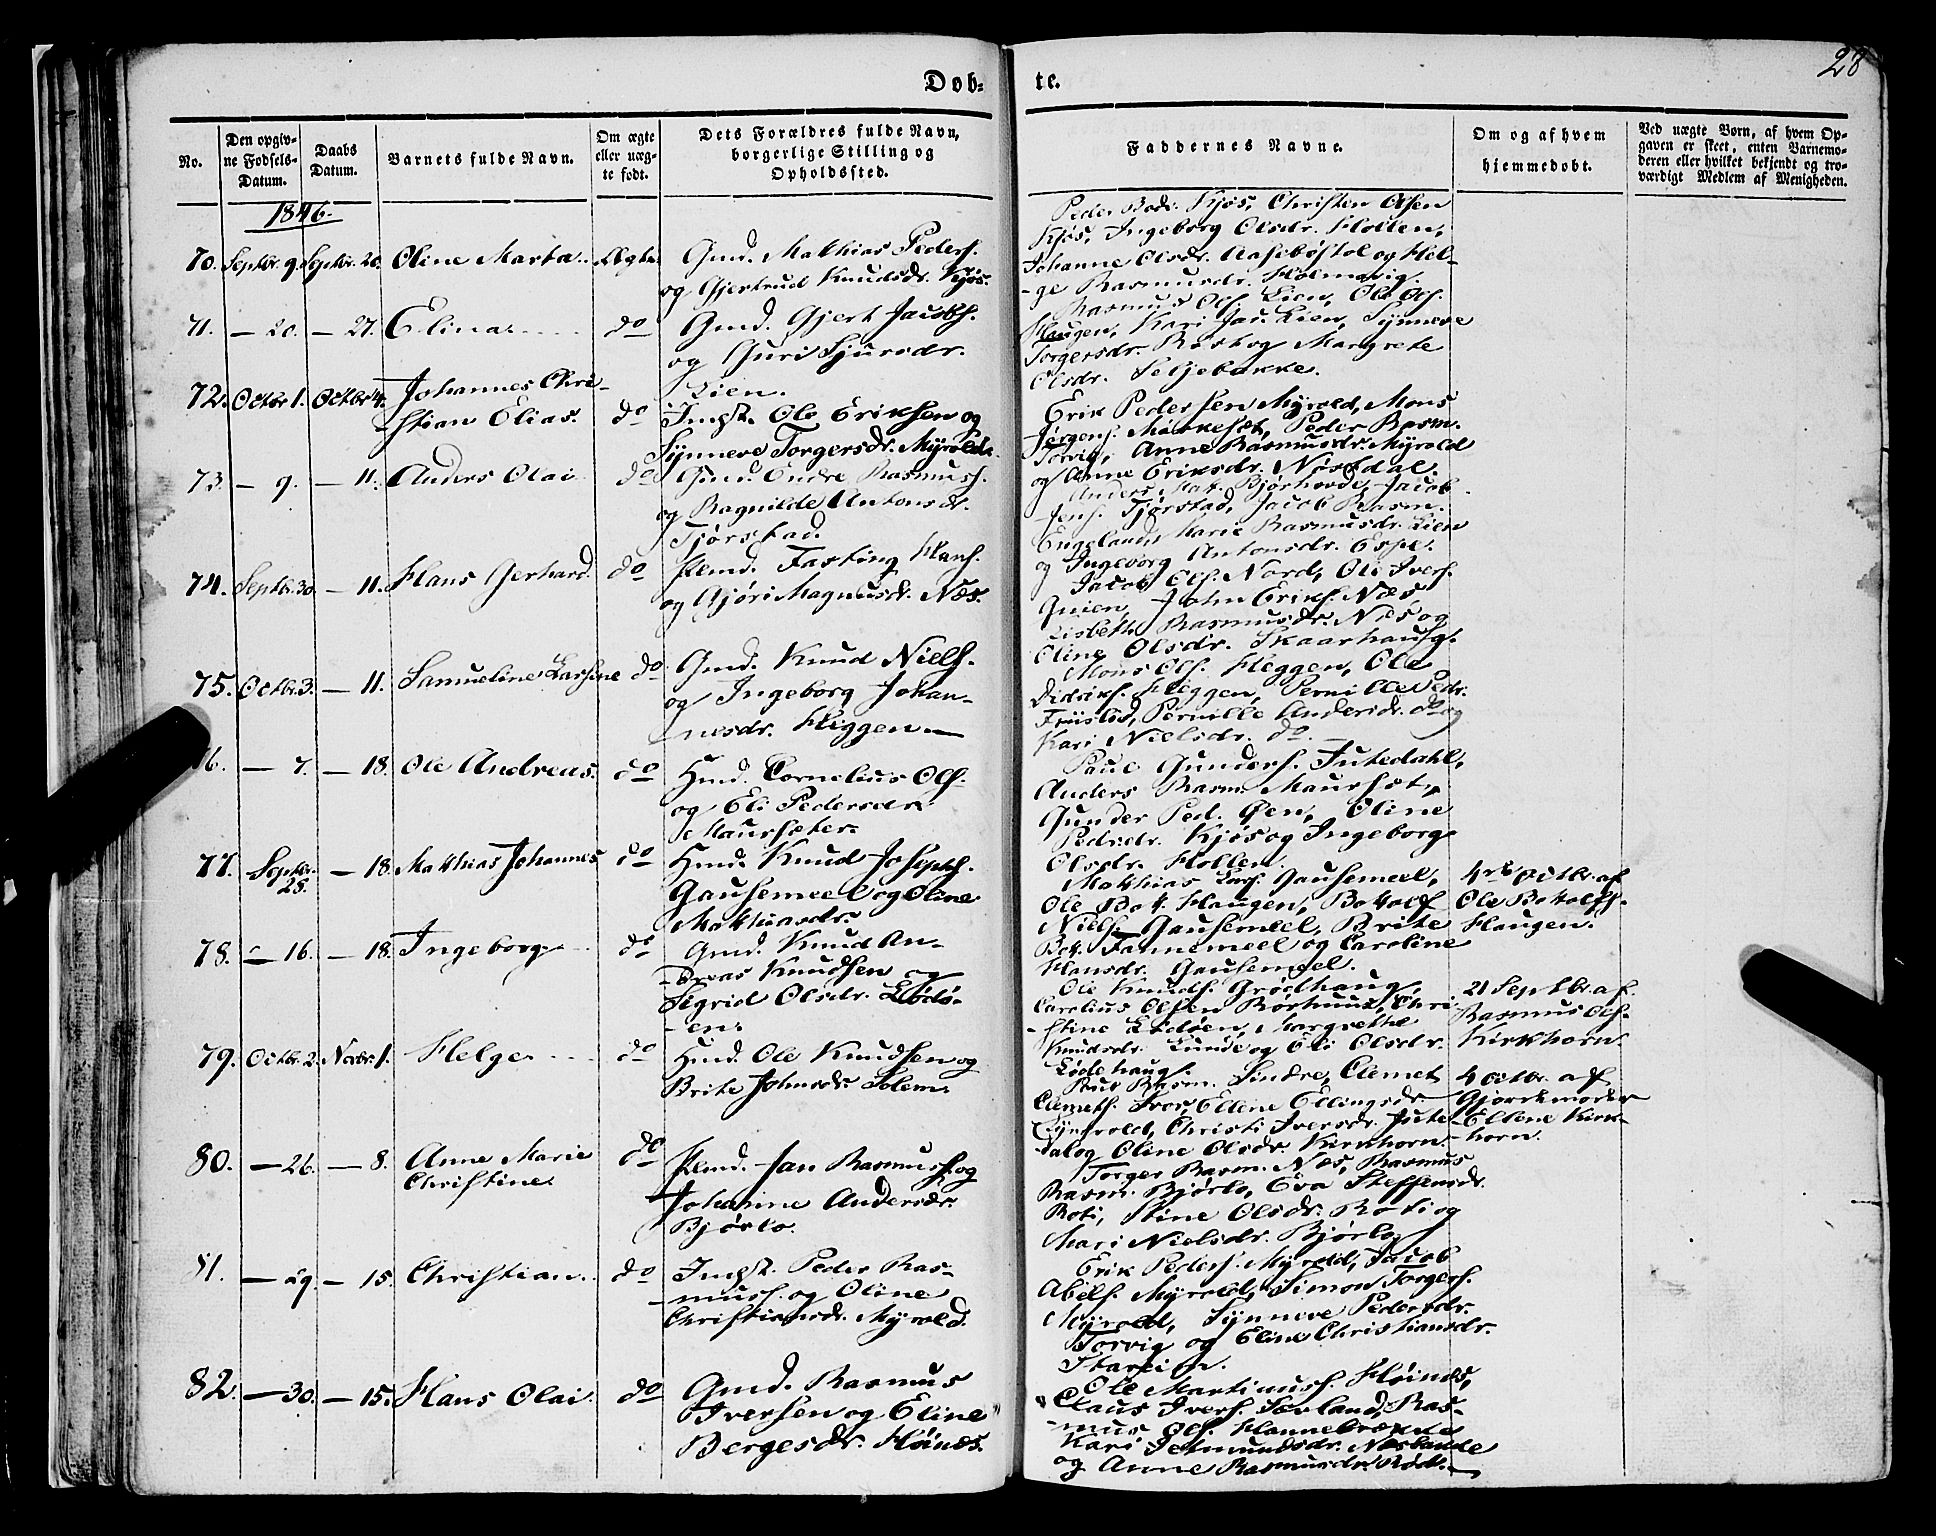 28
Døb-
te.
No.
Den opgiv-
ne Fødsels-
Datum.
Daabs
Datum.
Barnets fulde Navn.
Om ægte
eller uæg-
te født.
Dets Forældres fulde Navn,
borgerlige Stilling og
Opholdssted.
Faddernes Navne.
Om og af hvem
hjemmedøbt.
Ved uægte Børn, af hvem Op-
gaven er skeet, enten Barnemo-
deren eller hvilket bekjendt og tro-
værdigt Medlem af Menigheden.
1846.
70. Septbr. 9. Septbr. 20. Oline Marta Ægte
Gmd. Mathias Peders.
og Gjertrud Knudsdr. Kjøs.
Peder Kjøs, Christen Olsen
Kjøs, Ingeborg Olsdr. Hollen,
Johanne Olsdr. Aasebøstøl og Hel-
ge Rasmusdr. Holmøvig.
71. — 20. — 27. Elina do
Gmd. Gjert Jacobs.
og Guri Sjursdr.
Lien.
Rasmus Ols. Lien, Ole Ols.
Haugen, Kari Jac. Lien, Synneve
Torgersdr. og Margrete
Olsdr. Seljebakke.
72. Octbr 1. Octbr 4. Johannes Chri-
stian Elias. do
Indst. Ole Eriksen og
Synneve Torgersdr. Myrold.
Erik Pedersen Myrold, Mons
Jørgens. Mørkeset, Peder Rasm.
Torvig, Anne Rasmusdr. Myrold
og Anne Eriksdr. Nøstdal.
73. — 9. — 11. Anders Olai do
Gmd. Endre Rasmuss.
og Ragnilde Antonsdr.
Tjørstad.
Anders Bjørhovde, Jacob
Jens. Tjørstad, Jacob Rasm.
Engeland, Marie Rasmusdr. Lien
og Ingeborg Antonsdr. Espe.
74. Septbr. 30. — 11. Hans Gerhard. do
Plmd. Fasting Hans.
og Gjøri Magnusdr. Næs.
Jacob Ols. Nord, Ole Ivers.
John Eriks. Næs
Lisbeth Rasmusdr. Næs og
Oline Olsdr. Skaarhaug.
75. Octbr. 3. — 11. Samueline Larsine do
Gmd. Knud Niels.
og Ingeborg Johan-
nesdr. Heggen —
Mons Ols. Heggen, Ole
Didriks. Heggen, Pernille Pedr.
Friislid, Pernille Andersdr. do og
Kari Nielsdr. do. —
6. — 7. — 18. Ole Andreas. do
Hmd. Cornelius Ols.
og Eli Pedersdr.
Maursæter.
Paul Gunders. Jutedahl,
Anders Rasm. Maurset,
Gunder Ped. Øen, Oline
Pedrdr. Kjøs og Ingeborg
Olsdr. Hollen.
77. Septbr.
25. — 18. Mathias Johannes do
Hmd. Knud Joseph.
Gausemeel og Oline
Mathiasdr.
Mathias Lars. Gausemeel,
Ole Bot. Haugen, Botolf
Niels. Gausemeel, Brite
Bot. Tannemeel og Caroline
Hansdr. Gausemeel.
4de Octbr. af
Ole Botolfs.
Haugen.
78. — 16. — 18. Ingeborg do
Gmd. Knud An-
dreas Knudsen og
Sigrid Olsdr. Lødø-
en.
Ole Knuds. Grødhaug,
Carolius Olsen Rørhuus, Chri-
stine Lødøen, Margrethe
Knudsdr. Lunde og Eli Olsdr.
Lødehaug.
21 Septbr. af
Rasmus Ols.
Kirkhorn.
79. Octbr. 2. Novbr. 1. Helge do
Hmd. Ole Knudsen og
Brite Johnsdr. Solem.
Rasm. Sindre, Clemet
Clemets. Ellene Ellingsdr.
Christi Iversdr. Jute-
dal og Oline Olsdr. Kirkhorn.
4 Octbr. af
Gjordemoder
Ellene Kirk-
horn.
80. — 26. — 8. Anne Marie
Christine do
Plmd. Jan Rasmuss. og
Johanne Andersdr.
Bjørlo.
Torger Rasm. Næs, Rasmus
Rasm. Bjørlo, Eva Steffensdr.
Roti, Stine Olsdr. Roti og
Mari Nielsdr. Bjørlo.
81. — 29. — 15. Christian do
Indst. Peder Ras-
muss. og Oline
Christiansdr. Myrold.
Erik Peders. Myrold, Jacob
Abels. Myrold, Simon Torgers.
Myrold, Synneve Pedersdr.
Torvig og Eline Christiansdr.
82. — 30. — 15. Hans Olai. do
Gmd. Rasmus
Iversen og Eline
Bergesdr. Høinæs.
Ole Martinuss. Høinæs,
Claus Ivers. Sørland, Ras-
mus Ols. Hannebrække
Kari Jetmundsdr. Næsbakke
og Anne Rasmusdr. Rød. —